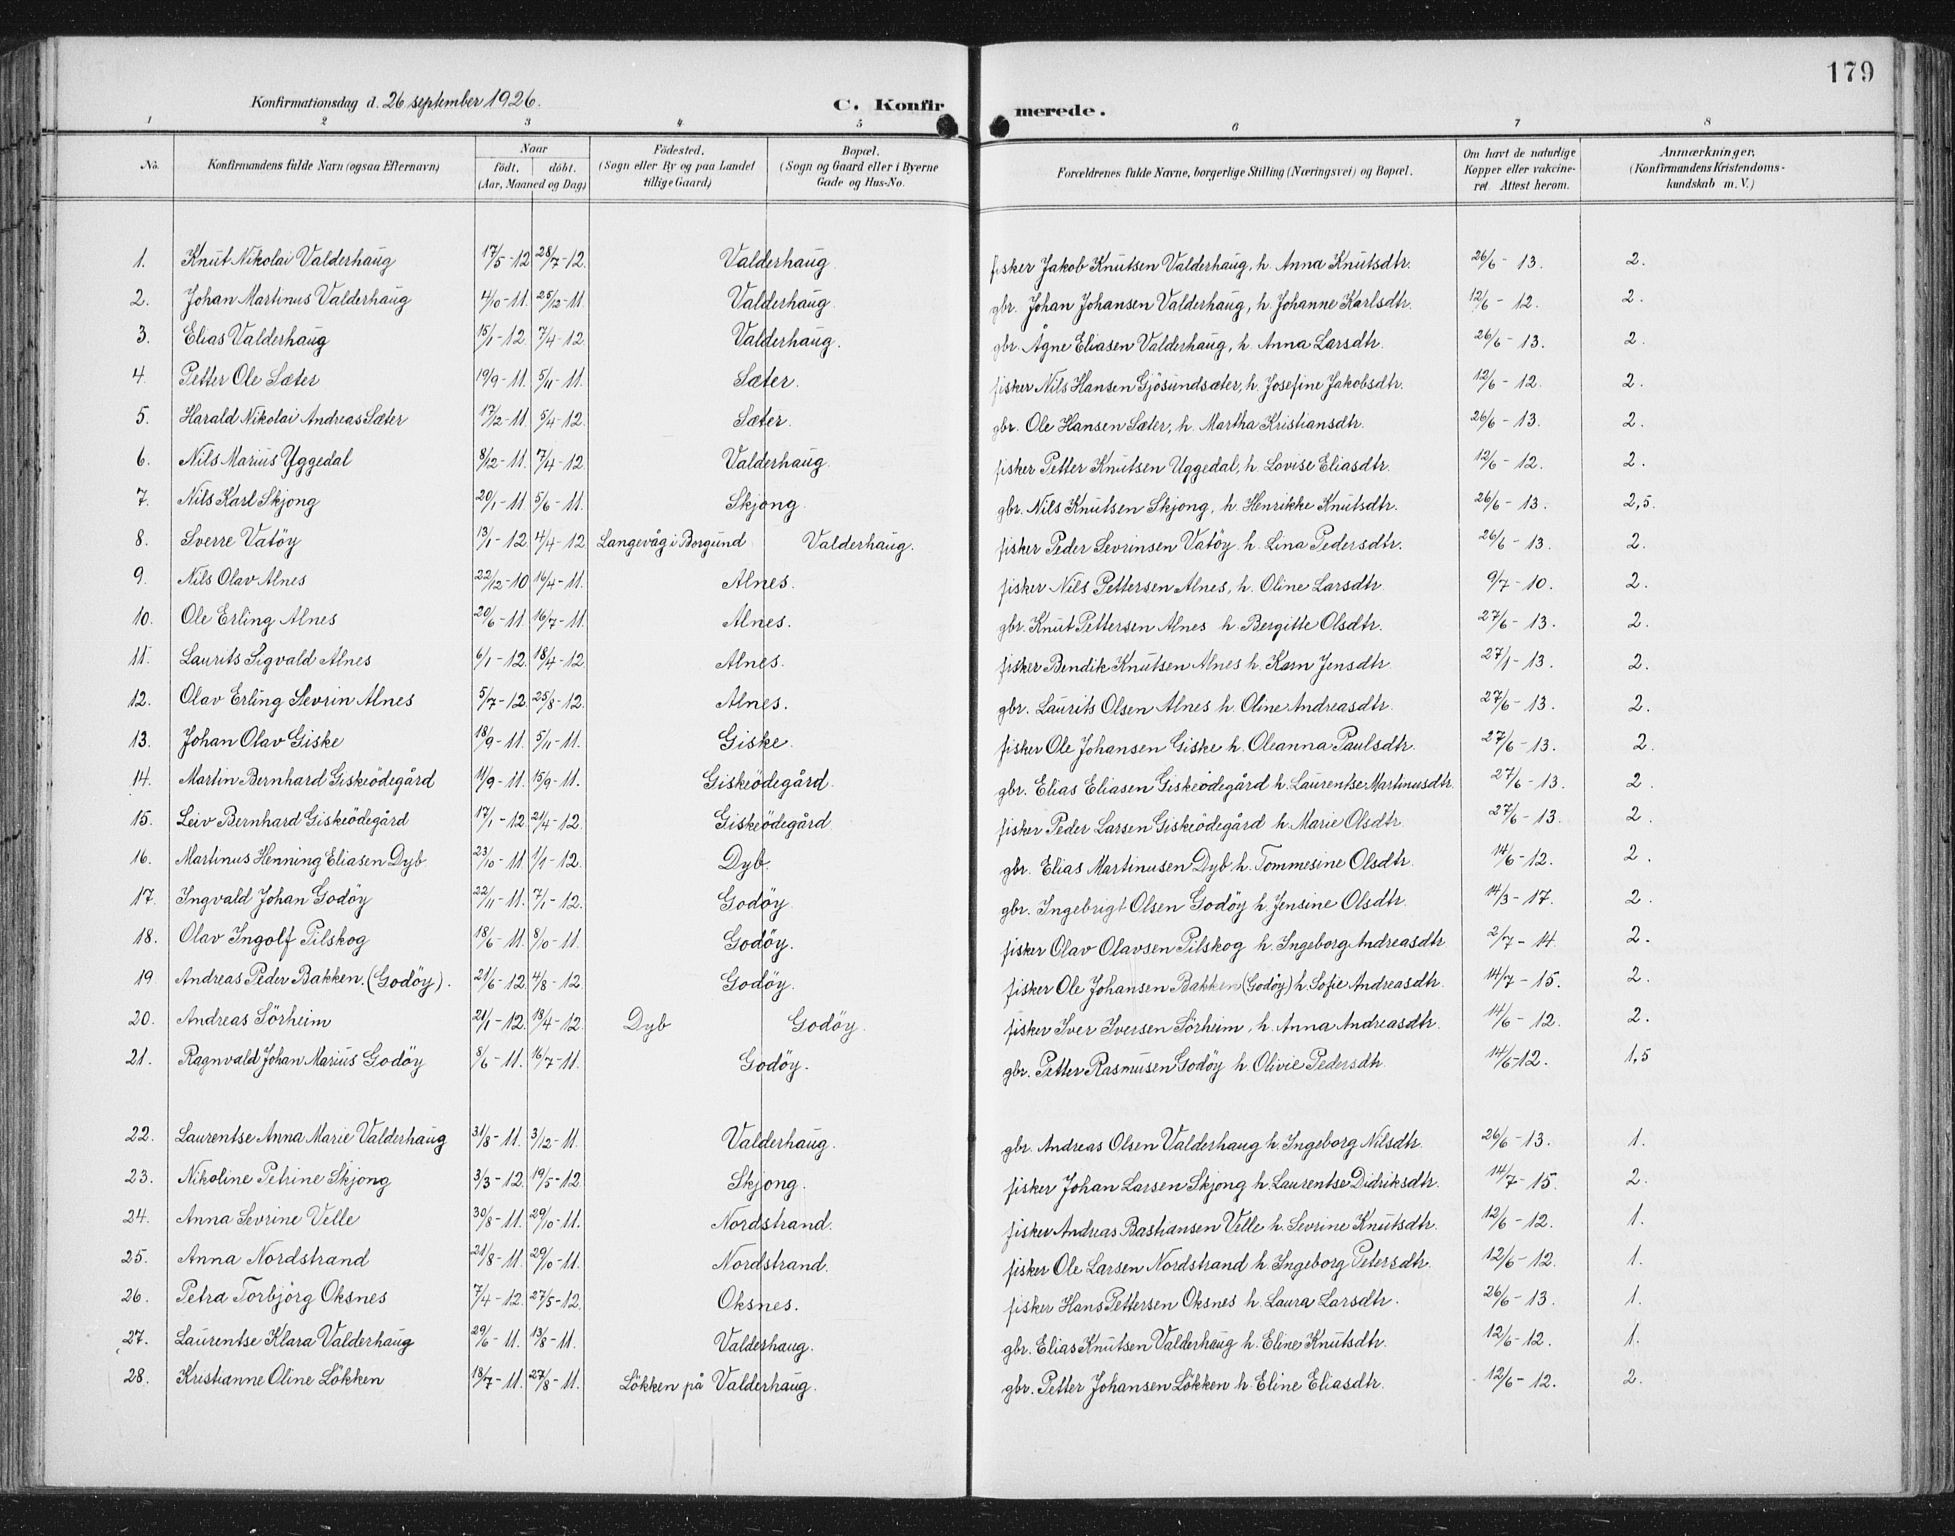 179
Konfirmationsdag d. 26 september 1926. C. Konfirmerede.
1 2 3 4 5 6 7 8
No. Konfirmandens fulde Navn (ogsaa Efternavn) Naar födt. döbt. (Aar, Maaned og Dag) Födested. (Sogn eller By og paa Landet tillige Gaard) Bopæl. (Sogn og Gaard eller i Byerne Gade og Hus-No. Forældrenes fulde Navne, borgerlige Stilling (Næringsvei) og Bopæl. Om havt de naturlige Kopper eller vakcineret. Attest herom. Anmærkninger, (Konfirmandens Kristendomskundskab m. V.)
1. Knut Nikolai Valderhaug 17/5-12 28/7-12. Valderhaug. fisker Jakob Knutsen Valderhaug, h. Anna Knutsdtr. 26/6-13. 2.
2. Johan Martinus Valderhaug 4/10-11. 25/12-11. Valderhaug. gbr. Johan Johansen Valderhaug, h. Johanne Karlsdtr. 12/6-12. 2.
3. Elias Valderhaug 15/1-12 7/4-12 Valderhaug. gbr. Ågne Eliasen Valderhaug, h. Anna Larsdtr. 26/6-13. 2.
4. Petter Ole Sæter 19/9-11. 5/11-11. Sæter. fisker Nils Hansen Gjösundsæter, h. Josefine Jakobsdtr. 12/6-12. 2.
5. Harald Nikolai Andreas Sæter 17/12-11. 5/4-12. Sæter. gbr. Ole Hansen Sæter, h. Martha Kristiansdtr. 26/6-13. 2.
6. Nils Marius Uggedal 8/12-11. 7/4-12 Valderhaug. fisker Petter Knutsen Uggedal, h. Lovise Eliasdtr. 12/6-12. 2.
7. Nils Karl Skjong 20/1-11. 5/6-11. Skjong. gbr. Nils Knutsen Skjong, h. Henrikke Knutsdtr. 26/6-13. 2,5.
8. Sverre Vatöy 13/1-12 4/4-12 Langevåg i Borgund Valderhaug. fisker Peder Sevrinsen Vatöy h. Lina Pedersdtr. 26/6-13. 2.
9. Nils Olav Alnes 22/12-10 16/4-11. Alnes. fisker Nils Pettersen Alnes, h. Oline Larsdtr 9/7-10. 2.
10. Ole Erling Alnes 20/6-11. 16/7-11. Alnes. gbr. Knut Pettersen Alnes h. Bergitte Olsdtr. 27/6-13. 2.
11. Laurits Sigvald Alnes 6/1-12. 18/4-12 Alnes. fisker Bendik Knutsen Alnes h. Karn Jensdtr. 27/1-13. 2.
12. Olav Erling Sevrin Alnes 5/7-12. 25/8-12. Alnes. gbr. Laurits Olsen Alnes h. Oline Andreasdtr. 27/6-13. 2.
13. Johan Olav Giske 18/9-11. 5/11-11. Giske. fisker Ole Johansen Giske h. Oleanna Paulsdtr. 27/6-13. 2.
14. Martin Bernhard Giskeödegård 11/9-11. 15/9-11. Giskeödegård. gbr. Elias Eliasen Giskeödegård h. Laurentse Martinusdtr. 27/6-13. 2.
15. Leiv Bernhard Giskeödegård 17/1-12 21/4-12. Giskeödegård fisker Peder Larsen Giskeödegård h. Marie Olsdtr. 27/6-13. 2.
16. Martinus Henning Eliasen Dyb 23/10-11. 1/1-12. Dyb. gbr. Elias Martinusen Dyb h. Tommesine Olsdtr. 14/6-12. 2.
17. Ingvald Johan Godöy 22/11-11. 7/1-12. Godöy. gbr. Ingebrigt Olsen Godöy h. Jensine Olsdtr. 14/3-17. 2.
18. Olav Ingolf Pilskog 18/6-11. 8/10-11. Godöy. fisker Olav Olavsen Pilskog h. Ingeborg Andreasdtr 2/7-14. 2.
19. Andreas Peder Bakken. (Godöy). 21/6-12. 4/8-12 Godöy. fisker Ole Johansen Bakken (Godöy) h. Sofie Andreasdtr. 14/7-15. 2.
20. Andreas Sörheim 21/1-12. 18/4-12 Dyb Godöy. fisker Iver Iversen Sörheim, h. Anna Andreasdtr. 14/6-12. 2.
21. Ragnvald Johan Marius Godöy 8/6-11. 16/7-11. Godöy. gbr. Petter Rasmusen Godöy h. Olivie Pedersdtr. 14/6-12. 1,5
22. Laurentse Anna Marie Valderhaug 31/8-11. 3/12-11. Valderhaug. gbr. Andreas Olsen Valderhaug h. Ingeborg Nilsdtr. 26/6-13. 1.
23. Nikoline Petrine Skjong 3/3-12. 19/5-12 Skjong. fisker Johan Larsen Skjong h. Laurentse Didriksdtr. 14/7-15. 2.
24. Anna Sevrine Velle 30/8-11. 29/10-11. Nordstrand. fisker Andreas Bastiansen Velle h. Sevrine Knutsdtr. 12/6-12. 1.
25. Anna Nordstrand 21/8-11. 29/10-11. Nordstrand. fisker Ole Larsen Nordstrand h. Ingeborg Petersdtr. 12/6-12. 1.
26. Petra Torbjörg Oksnes 7/4-12. 27/5-12. Oksnes. fisker Hans Pettersen Oksnes h. Laura Larsdtr. 26/6-13. 1.
27. Laurentse Klara Valderhaug 29/6-11. 13/8-11. Valderhaug. gbr. Elias Knutsen Valderhaug h. Eline Knutsdtr. 12/6-12. 1.
28. Kristianne Oline Lökken 18/7-11. 27/8-11. Lökken på Valderhaug. gbr. Petter Johansen Lökken h. Eline Eliasdtr. 12/6-12. 2.